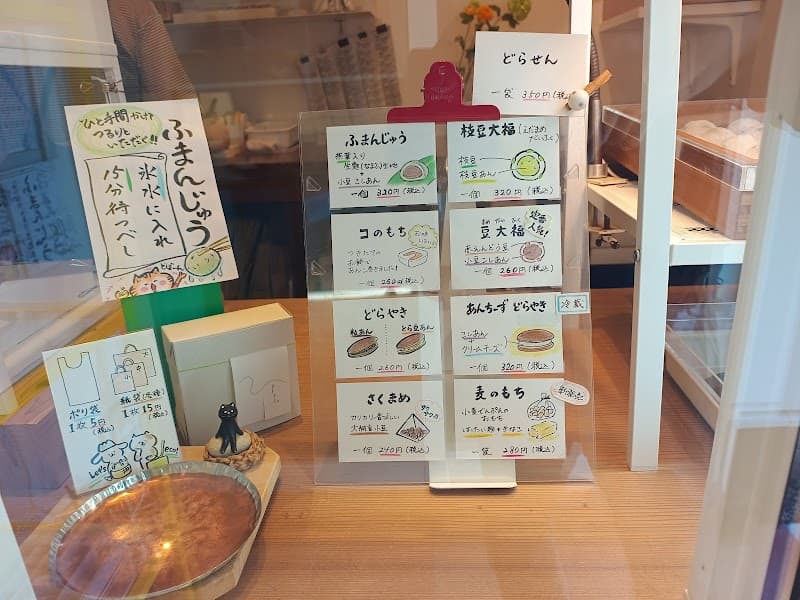 どらせん
一袋 350円(税込)
ひと手間かけて
つるりと
いただく!!
ふまんじゅう
氷水に入れ
15分待つべし
ふまんじゅう
生麩(なまふ)生地
+
小豆こしあん
一個 320円(税込)
枝豆大福(えだまめだいふく)
枝豆
枝豆あん
一個 320円(税込)
コのもち
つきたての
お餅で
あん巻きました!
一個 260円(税込)
豆大福
一番人気!
赤えんどう豆
小豆こしあん
一個 260円(税込)
どらやき
粒あん
とら豆あん
一個 260円(税込)
あんちーず どらやき
冷蔵
こしあん
+
クリームチーズ
一個 320円(税込)
さくまめ
カリカリ香ばしい
大納言小豆
一個 240円(税込)
麦のもち
新発売
小麦でんぷんの
おもち
はったい粉+きなこ
一袋 280円(税込)
ポリ袋
1枚5円
(税込)
紙袋(各種)
1枚15円
(税込)
Let's
eco!